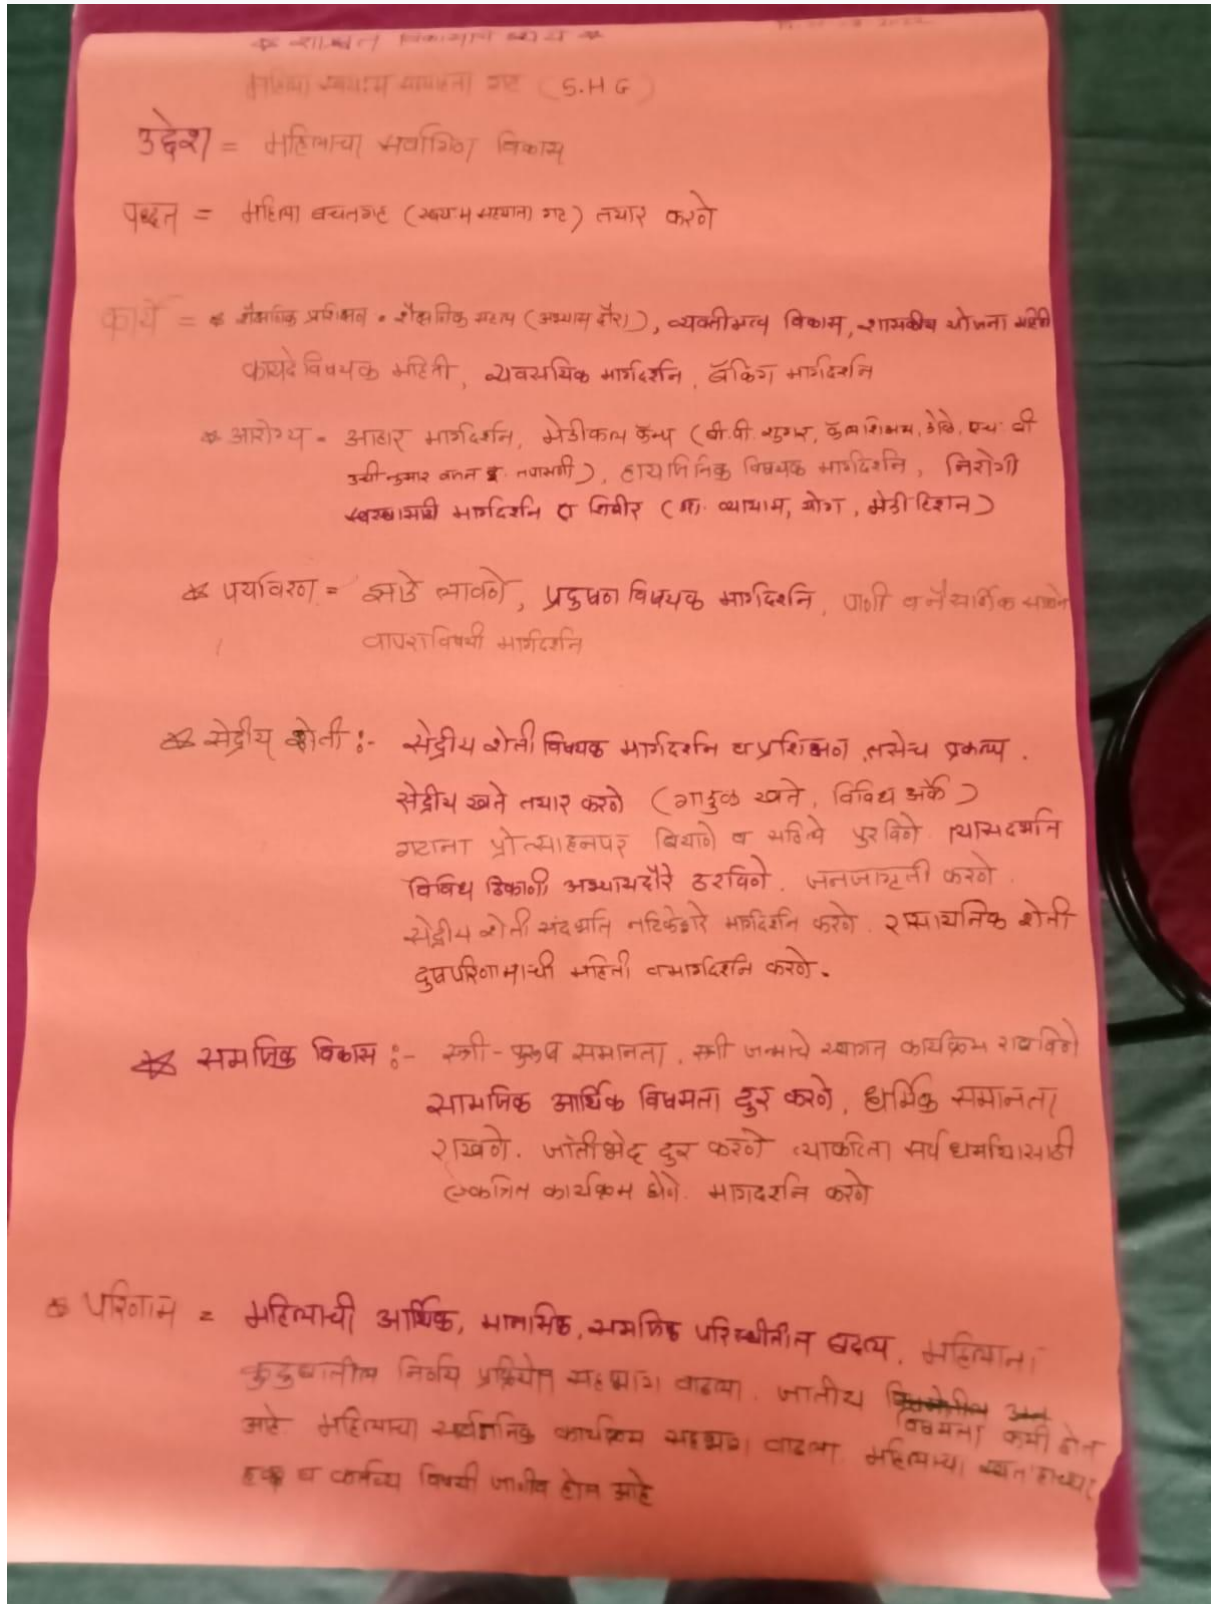 * शाश्वत विकासाचे ध्येय *
महिला स्वयंम सहायता गट (S.H G)
उद्देश = महिलाचा सर्वागिण विकास
पध्दत = महिला बचतगट (स्वयंम सहायता गट) तयार करणे
कार्य = * शैक्षणिक प्रशिक्षण - शैक्षणिक सहल (अभ्यास दौरा), व्यक्तीमत्व विकास, शासकीय योजना माहिती
कायदे विषयक माहिती, व्यवसायिक मार्गदर्शन, बॅंकिग मार्गदर्शन
* आरोग्य - आहार मार्गदर्शन, मेडीकल कॅम्प (बी.पी. शुगर, कॅलशियम, डोळे, एच. बी
उंची नुसार वजन तपासणी), हायजिनिक विषयक मार्गदर्शन, निरोगी
मार्गदर्शन व शिबीर (व्यायाम, योग, मेडीटेशन)
* पर्यावरण = झाडे लावणे, प्रदुषण विषयक मार्गदर्शन, पाणी व नैसर्गिक
वापराविषयी मार्गदर्शन
* सेंद्रीय शेती :- सेंद्रीय शेती विषयक मार्गदर्शन व प्रशिक्षण, तसेच प्रकल्प.
सेंद्रीय खते तयार करणे (गाडुळ खते, विविध अर्के)
गटाना प्रोत्साहनपर बियाणे व साहित्य पुरविणे. त्यासंदर्भात
विविध ठिकाणी अभ्यासदौरे ठरविणे. जनजागृती करणे.
सेंद्रीय शेती संदर्भात मार्गदर्शन करणे. रासायनिक शेती
दुषपरिणामाची माहिती व मार्गदर्शन करणे.
* समाजिक विकास :- स्त्री-पुरुष समानता, स्त्री जन्माचे स्वागत कार्यक्रम राबविणे
सामाजिक आर्थिक विषमता दुर करणे, धार्मिक समानता
राखणे. जातीभेद दुर करणे त्याकरिता सर्व धर्मायासाठी
एकत्रित कार्यक्रम घेणे. मार्गदर्शन करणे
* परिणाम = महिलाची आर्थिक, मानसिक, समाजिक परिस्थीतीत बदल. महिलाना
कुटुंबातील निर्णय प्रक्रियेत सहभाग वाढला. जातीय विषमता कमी होत
आहे. महिलाचा सार्वजनिक कार्यक्रम सहभाग वाढला. महिलाच्या स्वतःहाच्या
हक्क व कर्तव्य विषयी जाणीव होत आहे